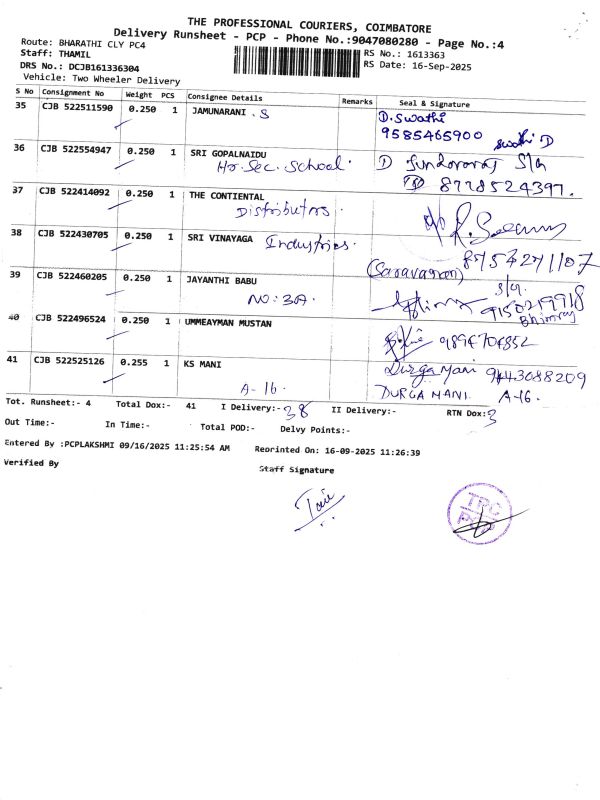 THE PROFESSIONAL COURIERS, COIMBATORE
Delivery Runsheet - PCP - Phone No.:9047080280 - Page No.:4
Route: BHARATHI CLY PC4
RS No.: 1613363
Staff: THAMIL
RS Date: 16-Sep-2025
DRS No.: DCJB161336304
Vehicle: Two Wheeler Delivery
S No Consignment No Weight PCS Consignee Details Remarks Seal & Signature
35 CJB 522511590 0.250 1 JAMUNARANI . S D. Swathi
9585465900 Swathi D
36 CJB 522554947 0.250 1 SRI GOPALNAIDU
Hr. Sec. School. 8778524397.
37 CJB 522414092 0.250 1 THE CONTIENTAL
Distributors.
38 CJB 522430705 0.250 1 SRI VINAYAGA Industries. 8754271107
(Saravanan)
39 CJB 522460205 0.250 1 JAYANTHI BABU
NO: 3A. Bhimraj
40 CJB 522496524 0.250 1 UMMEAYMAN MUSTAN 9894704852
41 CJB 522525126 0.255 1 KS MANI Durga Mani 9443088209
A-16. DURGA MANI. A-16.
Tot. Runsheet:- 4 Total Dox:- 41 I Delivery:- 38 II Delivery:- RTN Dox: 3
Out Time:- In Time:- Total POD:- Delvy Points:-
Entered By :PCPLAKSHMI 09/16/2025 11:25:54 AM Reprinted On: 16-09-2025 11:26:39
Verified By Staff Signature